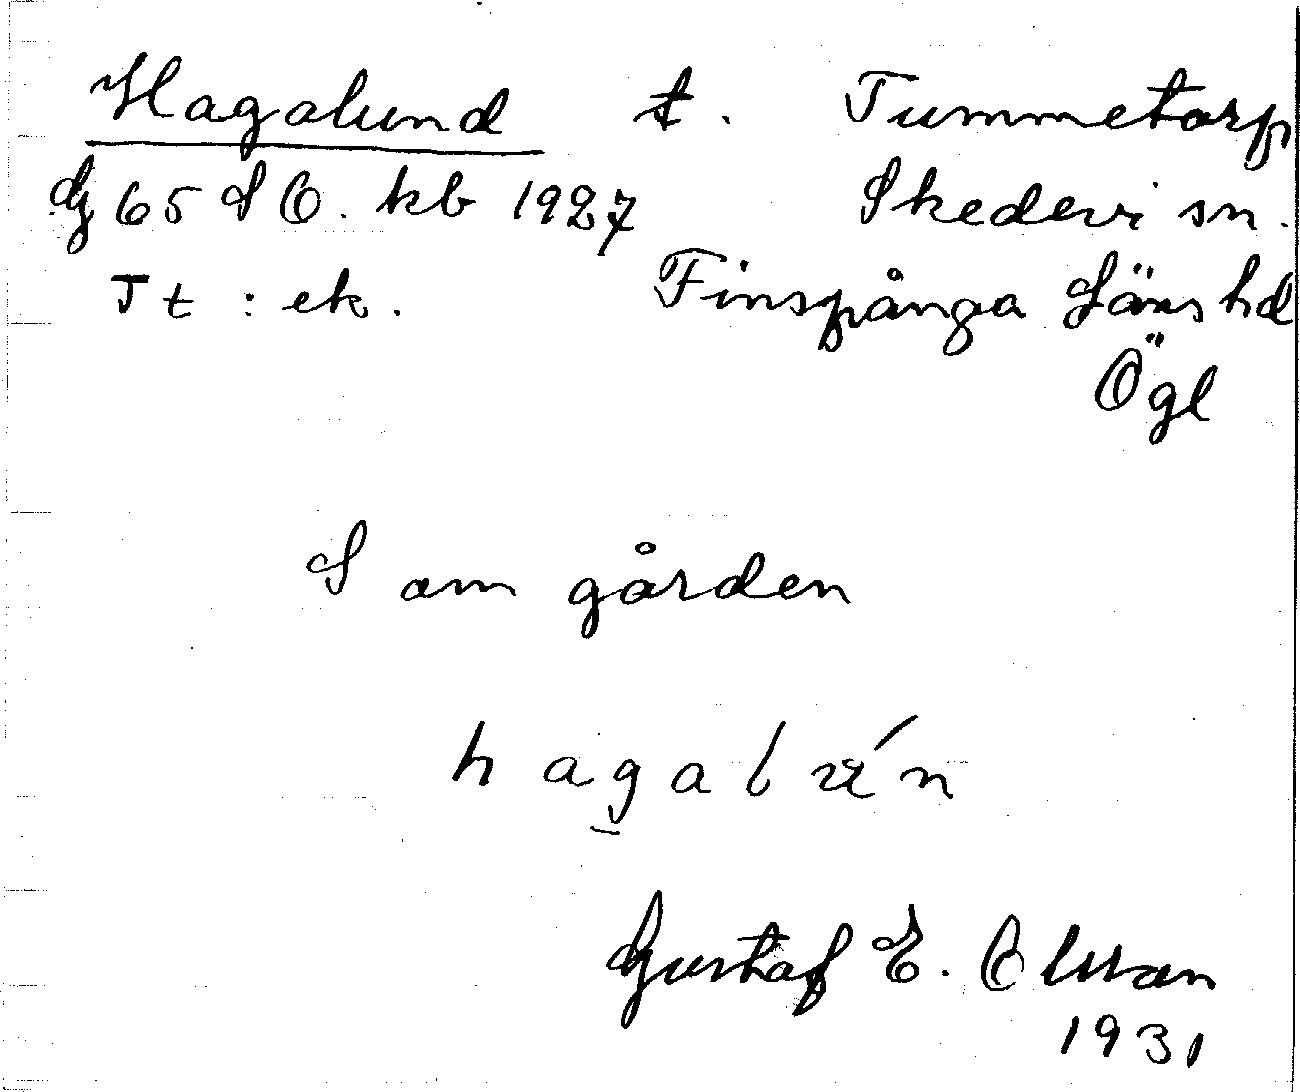 Hagalund t. Tummetorp
dg 65 S O. kb 1927 Skedevi sn.
Jt : ek. Finspånga Läns hd
Ögl
I am gården
hagal
Gustaf E. Olsson
1931